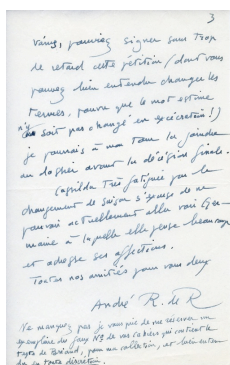 3
vains, pourriez signer sans trop
de retard cette pétition (dont vous
pouvez bien entendu changer les
termes, pourvu que le mot estime
n'en soit pas changé en exécration !)
je pourrais à mon tour la joindre
au dossier avant la décision finale.
Casilda très fatiguée par le
changement de saison s'excuse de ne
pouvoir actuellement aller voir Ger-
maine à laquelle elle pense beaucoup
et adresse ses affections.
Toutes nos amitiés pour vous deux
André R. de R
Ne manquez pas je vous prie de me réserver un
exemplaire du fameux No de vos cahiers qui contient le
texte de Briand, pour ma collection, et bien enten-
du en toute discrétion.